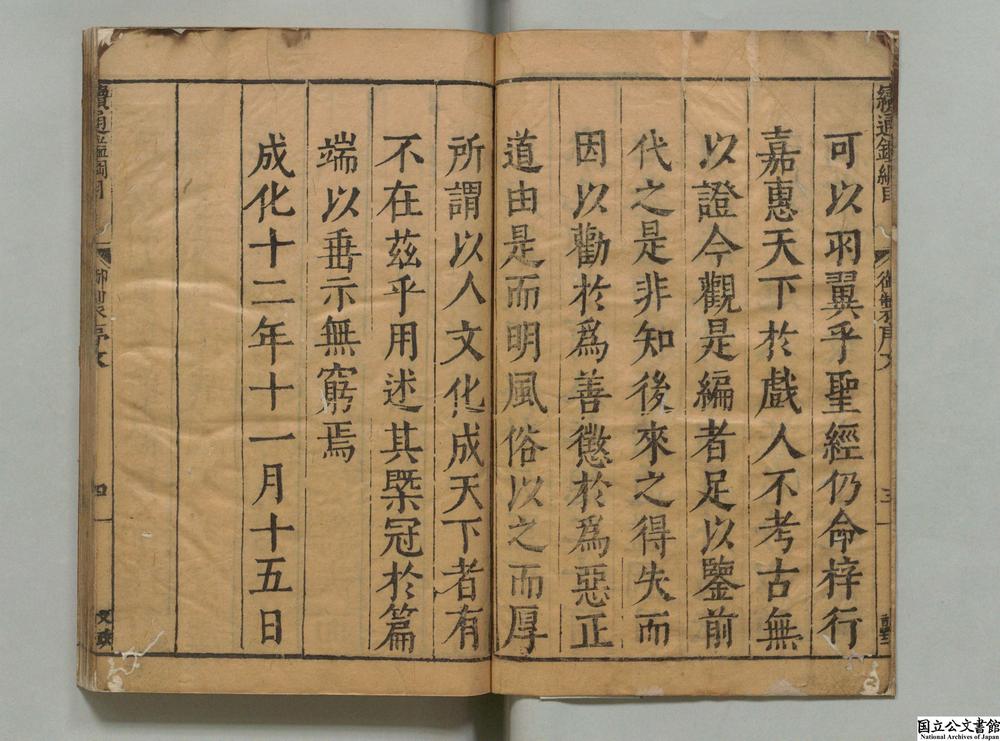 續通鑑綱目
御製序文
三
可以羽翼乎聖經仍命梓行
嘉惠天下於戲人不考古無
以證今觀是編者足以鑒前
代之是非知後來之得失而
因以勸於爲善懲於爲惡正
道由是而明風俗以之而厚
所謂以人文化成天下者有
不在茲乎用述其槩冠於篇
端以垂示無窮焉
成化十二年十一月十五日
續通鑑綱目
御製序文
四
国立公文書館
National Archives of Japan